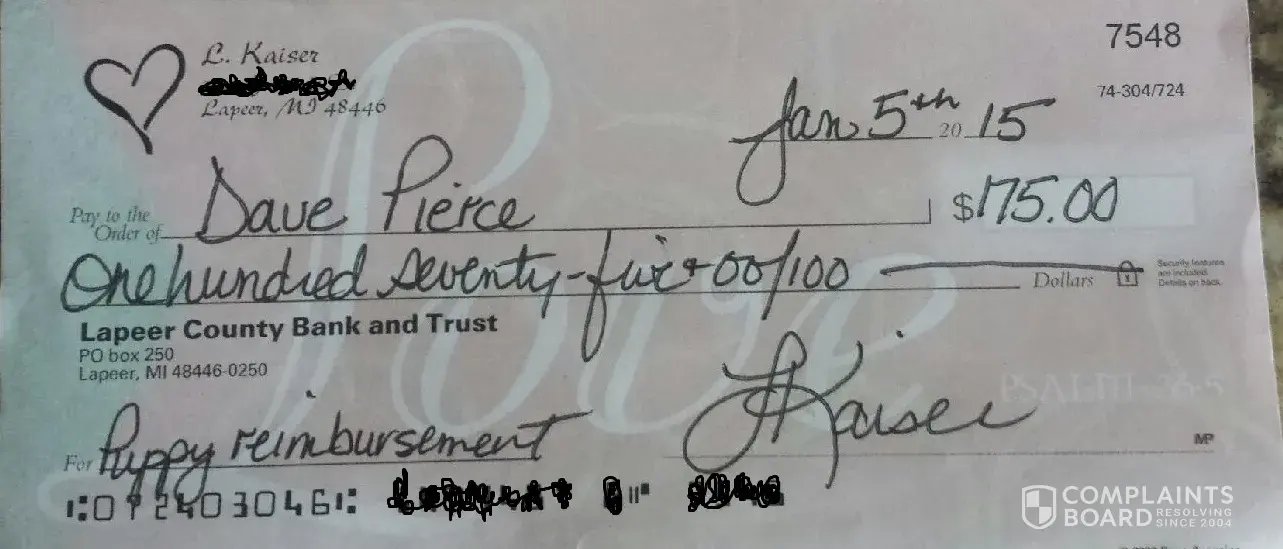 7548
L. Kaiser
Lapeer, MI 48446
74-304/724
Jan 5th 20 15
Pay to the
Order of Dave Pierce $ 175.00
One hundred seventy-five + 00/100 Dollars
Security features
are included.
Details on back.
Lapeer County Bank and Trust
PO box 250
Lapeer, MI 48446-0250
PSALM
For Puppy reimbursement
Kaiser
MP
⑆072403046⑆
COMPLAINTS
BOARD RESOLVING
SINCE 2004